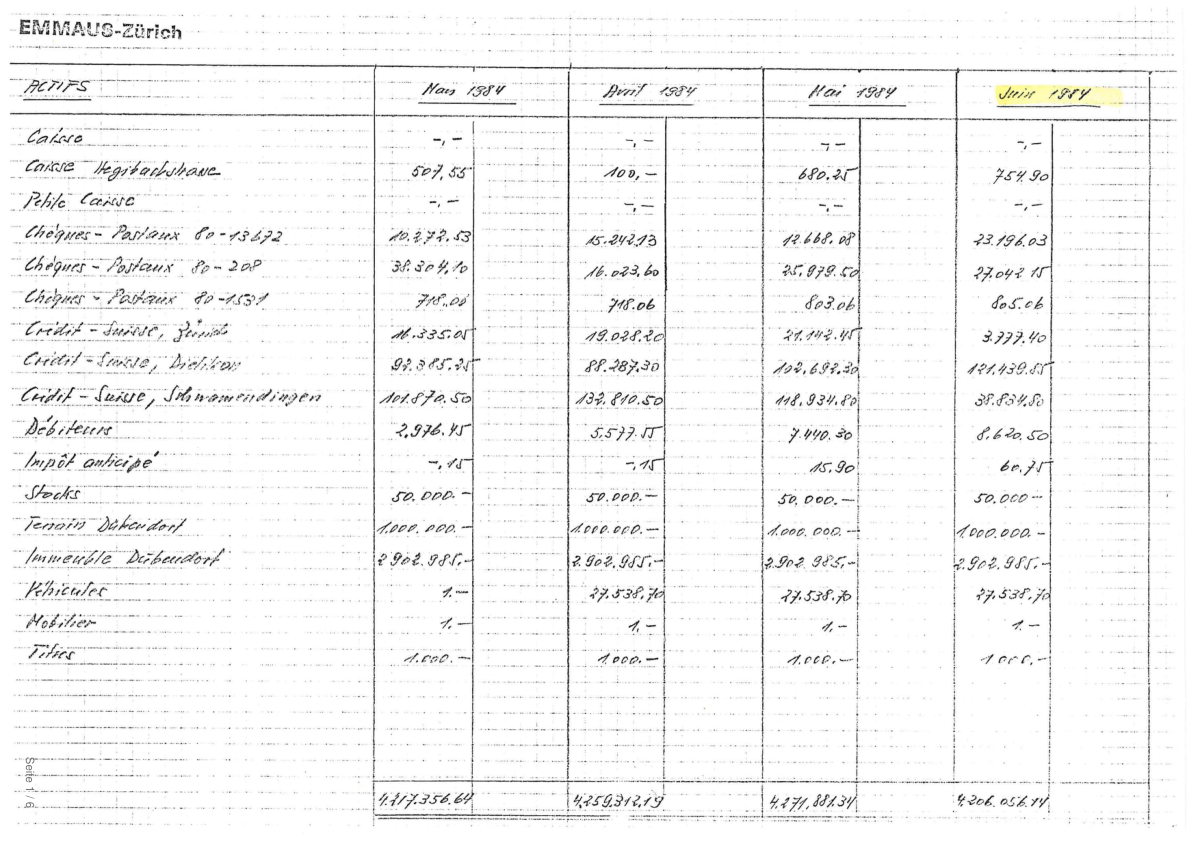 EMMAUS-Zürich
ACTIFS Mars 1984 Avril 1984 Mai 1984 Juin 1984
Caisse -,- -,- -,- -,-
Caisse Hegibachstrasse 507,55 100,- 680.25 754.90
Petite Caisse -,- -,- -,- -,-
Chèques-Postaux 80-13672 10.272.53 15.242.13 12.668.08 23.196.03
Chèques-Postaux 80-208 38.304,10 16.023.60 25.979.50 27.042 15
Chèques-Postaux 80-1531 718.06 718.06 803.06 805.06
Crédit-Suisse, Zürich 16.335.05 19.028.20 21.142.45 3.777.40
Crédit-Suisse, Dietikon 92.385.25 88.287.30 102.692.30 121.439.85
Crédit-Suisse, Schwamendingen 101.870.50 132.810.50 118.934.80 38.834.80
Débiteurs 2,976.45 5.577.55 7.440.30 8.620.50
Impôt anticipé -,15 -,15 15.90 60.75
Stocks 50.000.- 50.000.- 50.000.- 50.000-
Terrain Dübendorf 1.000.000.- 1.000.000.- 1.000.000.- 1.000.000.-
Immeuble Dübendorf 2.902.985.- 2.902.985.- 2.902.985.- 2.902.985.-
Véhicules 1.- 27.538,70 27.538.70 27.538.70
Mobilier 1.- 1,- 1,- 1.-
Titres 1.000.- 1.000.- 1.000.- 1.000.-
4.217.356.64 4.259.312.19 4.271.881.34 4.206.056.14
Seite 1 / 6